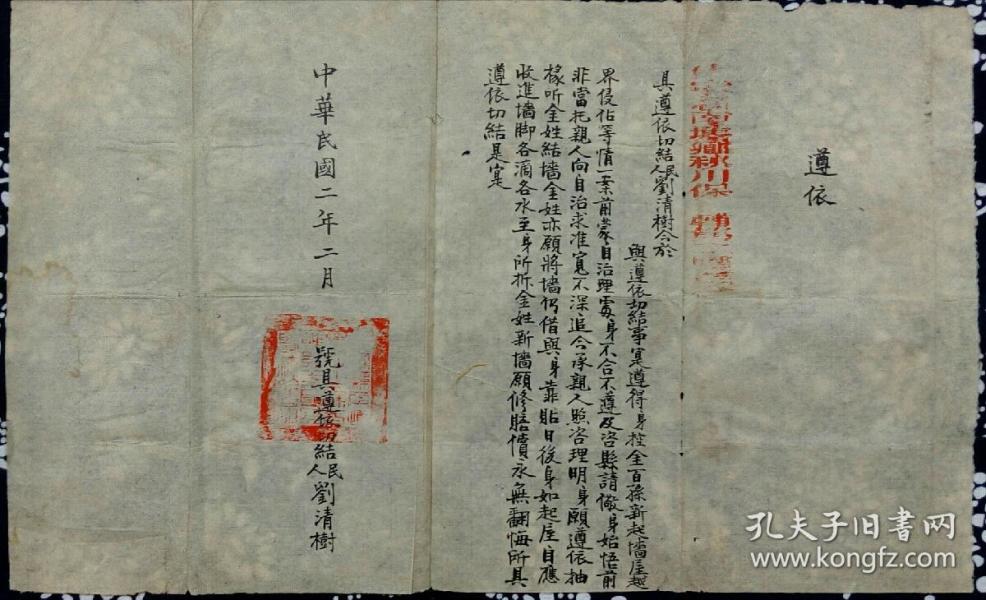 遵依
具遵依切結人民劉清樹今於
與遵依切結事寔遵得身控金百孫新起墻屋越
界侵佔等情一案前蒙自治理處身不合不遵及咨縣請儆身始悟前
非當托親人向自治求准寬不深追今承親人照咨理明身願遵依抽
椽听金姓結墻金姓亦願將墻仍借與身靠貼日後身如起屋自應
收進墻脚各滴各水至身所拆金姓新墻願修賠償永無翻悔所具
遵依切結是寔
中華民國二年二月
號具遵依切結人民劉清樹
孔夫子旧书网
www.kongfz.com